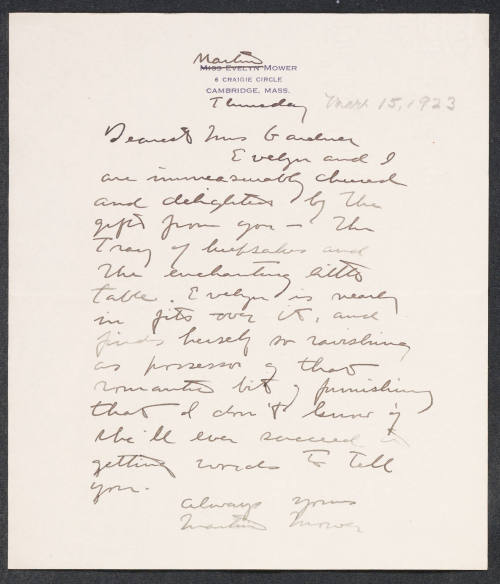 Martin
Miss Evelyn Mower
6 Craigie Circle
Cambridge, Mass.
Thursday Mar. 15, 1923
Dearest Mrs Gardner
Evelyn and I
are immeasurably cheered
and delighted by the
gifts from you — the
Tray of keepsakes and
the enchanting little
table. Evelyn is nearly
in fits over it, and
finds herself so ravishing
as possessor of that
romantic bit of furnishing
that I don't know if
she'll ever succeed in
getting words to tell
you.
Always yours
Martin Mower